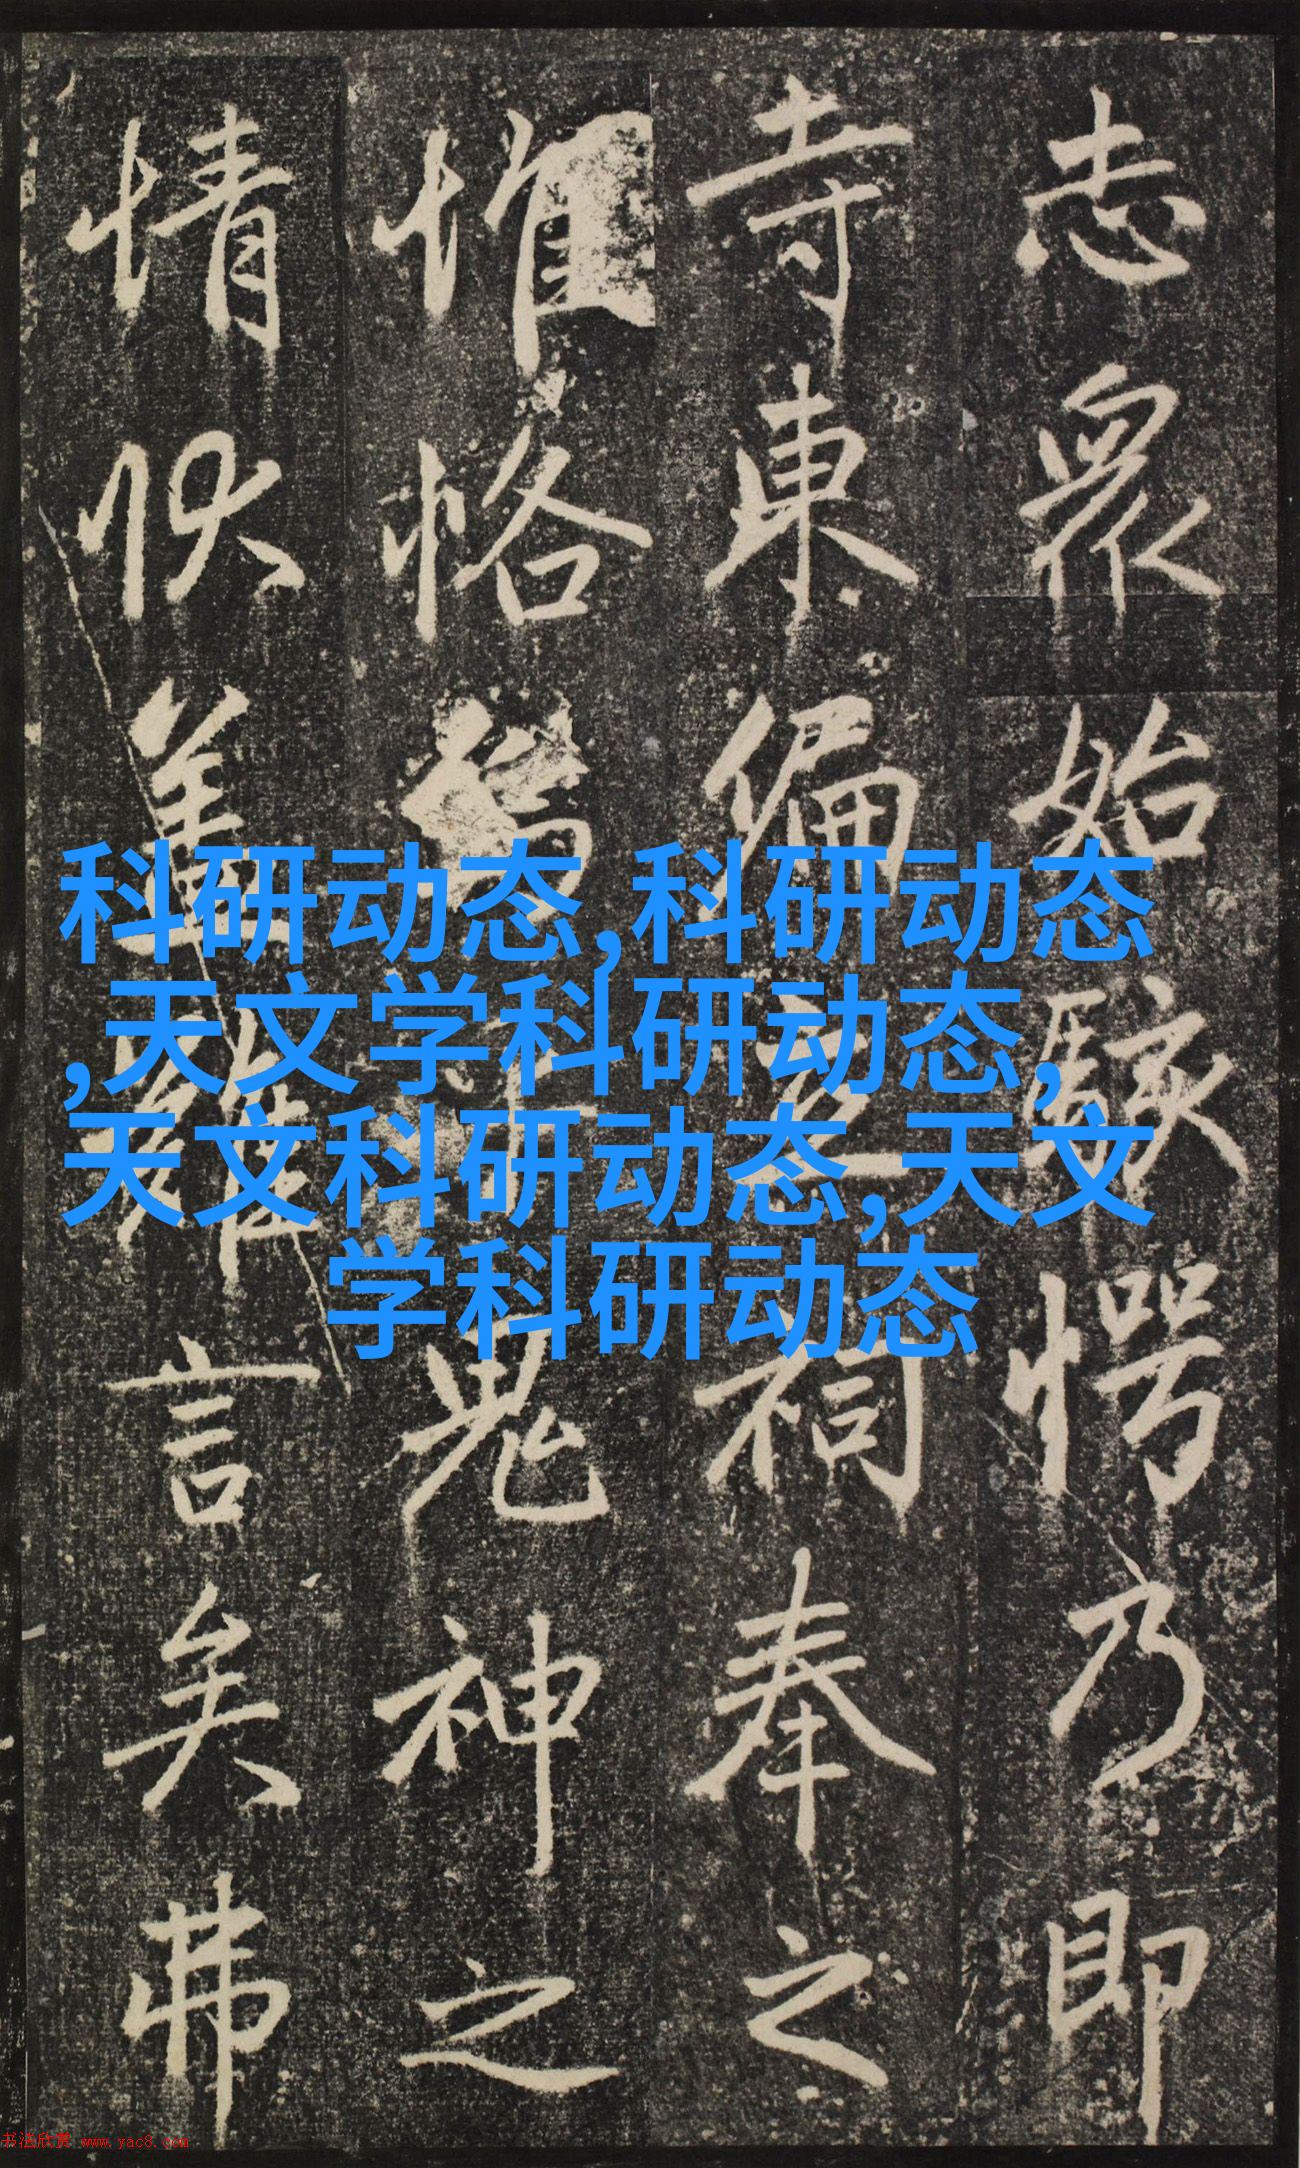 志眾始駭愕乃即
寺東偏立祠奉之
惟恪鬼神之
情狀蓋難言矣弗
科研动态,科研动态
,天文学科研动态,
天文科研动态,天文
学科研动态
书法欣赏 www.yac8.com